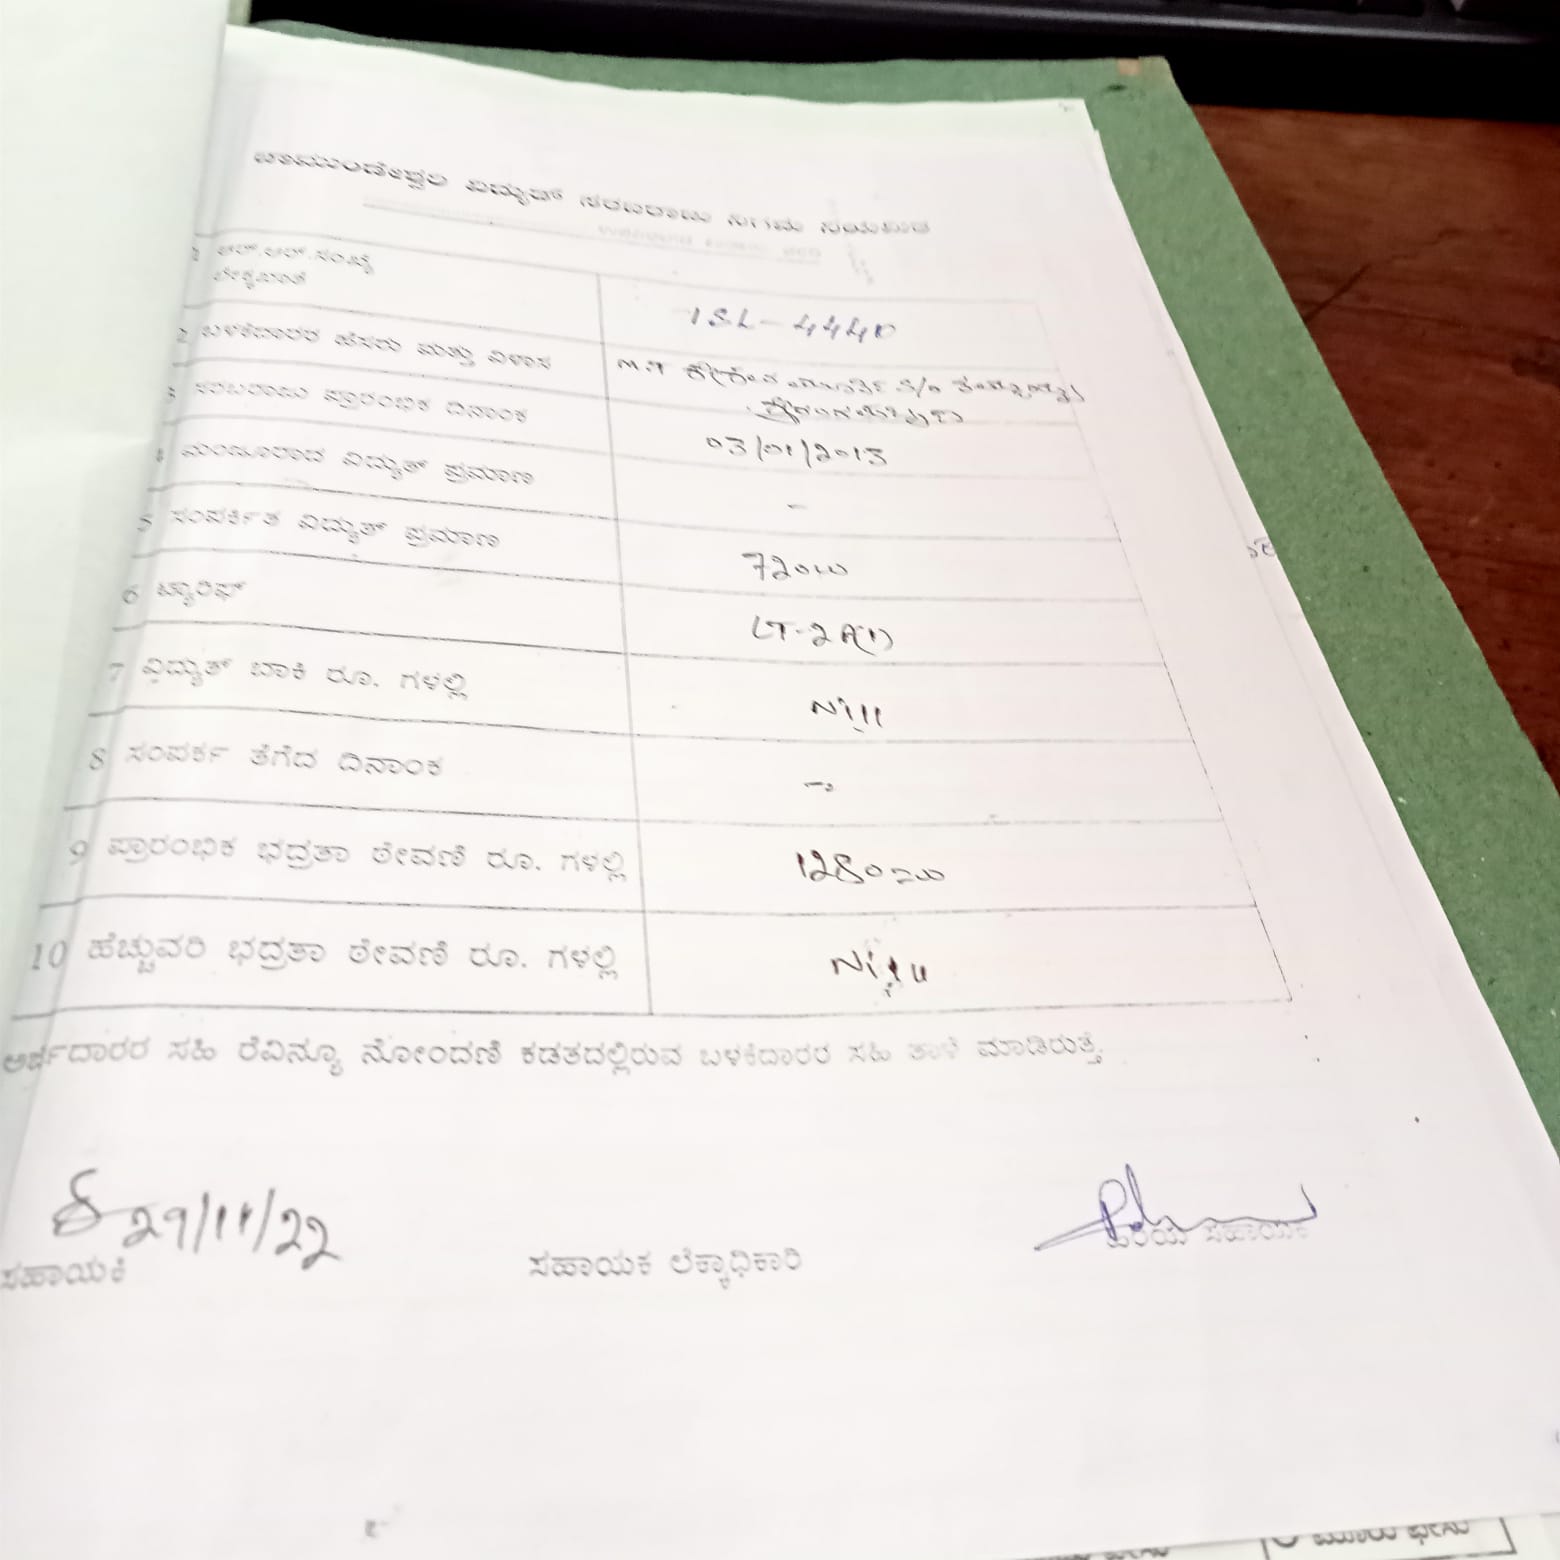 ಚಾಮುಂಡೇಶ್ವರಿ ವಿದ್ಯುತ್ ಸರಬರಾಜು ನಿಗಮ ನಿಯಮಿತ
1 ಆರ್.ಆರ್.ಸಂಖ್ಯೆ
ಲೆಕ್ಕಖಾತೆ
ISL-4440
2 ಬಳಕೆದಾರರ ಹೆಸರು ಮತ್ತು ವಿಳಾಸ
S/o
3 ಸರಬರಾಜು ಪ್ರಾರಂಭಿಕ ದಿನಾಂಕ
03/01/2013
4 ಮಂಜೂರಾದ ವಿದ್ಯುತ್ ಪ್ರಮಾಣ
-
5 ಸಂಪರ್ಕಿತ ವಿದ್ಯುತ್ ಪ್ರಮಾಣ
720w
6 ಟ್ಯಾರಿಫ್
LT-2A(1)
7 ವಿದ್ಯುತ್ ಬಾಕಿ ರೂ. ಗಳಲ್ಲಿ
Nill
8 ಸಂಪರ್ಕ ತೆಗೆದ ದಿನಾಂಕ
-
9 ಪ್ರಾರಂಭಿಕ ಭದ್ರತಾ ಠೇವಣಿ ರೂ. ಗಳಲ್ಲಿ
1280=00
10 ಹೆಚ್ಚುವರಿ ಭದ್ರತಾ ಠೇವಣಿ ರೂ. ಗಳಲ್ಲಿ
Nill
ಅರ್ಜಿದಾರರ ಸಹಿ ರೆವಿನ್ಯೂ ನೋಂದಣಿ ಕಡತದಲ್ಲಿರುವ ಬಳಕೆದಾರರ ಸಹಿ ತಾಳೆ ಮಾಡಿರುತ್ತೆ.
29/11/22
ಸಹಾಯಕಿ
ಸಹಾಯಕ ಲೆಕ್ಕಾಧಿಕಾರಿ
ಹಿರಿಯ ಸಹಾಯಕ